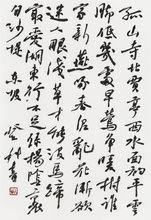 孤山寺北賈亭西水面初平雲
腳低幾處早鶯爭暖樹誰
家新燕啄春泥亂花漸欲
迷人眼淺草才能沒馬蹄
最愛湖東行不足綠楊陰裏
白沙堤